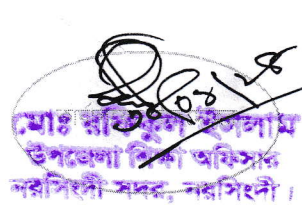 মোঃ রফিকুল ইসলাম
উপজেলা শিক্ষা অফিসার
নরসিংদী সদর, নরসিংদী।